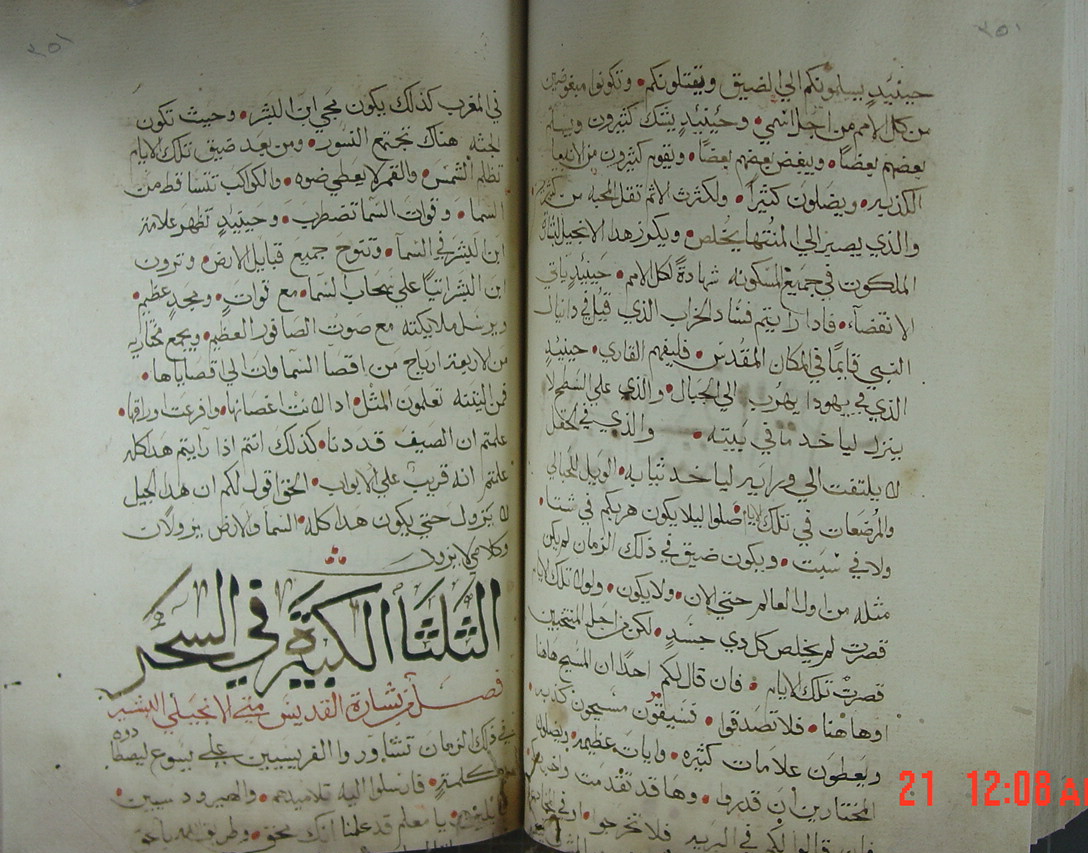 ٣٥١
حينيدٍ يسلمونكم الي الضيق ويقتلونكم • وتكونوا مبغوضين
من كل الامم من اجل اسمي • وحينئيدٍ يشك كثيرون ويسلم
بعضهم بعضاً • ويبغض بعضهم بعضاً • ويقوم كثيرون من الانبيا
الكذبه • ويضلون كثيراً • ولكثرت الاثم تقل المحبه من كثير
والذي يصبر الي المنتها يخلص • ويكرز هدا الانجيل
الملكوت في جميع المسكونه شهادةً لكل الامم • حينيدٍ ياتي
الانقضآء • فادا رايتم فساد الخراب الذي قيل في دانيال
النبي قايمًا في المكان المقدس • فليفهم القاري • حينيدٍ
الذي في يهودا يهرب الي الجبال • والذي علي السطح لا
ينزل لياخد ما في بيته • والذي في الحقل
لا يلتفت الي ورايه لياخد ثيابه • الويل للحبالي
والمرضعات في تلك الايام صلوا ليلا يكون هربكم في شتا •
ولا في سبت • ويكون ضيق في ذلك الزمان لم يكن
مثله من اول العالم حتي الان • ولا يكون • ولولا تلك الايام
قصرت لم يخلص كل دي جسدٍ • لكن من اجل المنتخبين
قصرتْ تلك الايام • فان قال لكم احدًا ان المسيح هاهنا
اوهاهنا • فلا تصدقوا • فسيقوم مسيحون كذبه •
ويعطون علامات كثيره • وايات عظيمه • ويضلون
المختارين ان قدروا • وها قد تقدمت واخبرتكم
فان قالوا لكم في البريه فلا تخرجوا •
٣٥١
في المغرب كذلك يكون مجي ابن البشر • وحيث تكون
الجثه هناك تجتمع النسور • ومن بعد ضيق تلك الايام
تظلم الشمس • والقمر لا يعطي ضوه • والكواكب تتساقط من
السما • وقوات السما تضطرب • وحينيدٍ تظهر علامة
ابن البشر في السمآ • وتنوح جميع قبايل الارض • وترون
ابن البشر اتيًا علي سحاب السما • مع قوات • ومجدٍ عظيم •
ويرسل ملايكته مع صوت الصافور العظيم • ويجمع مختاريه
من الاربعة ارياح من اقصا السماوات الي اقصاياها •
فمن التينه تعلمون المثل • ادا لانت اغصانها • وافرعت اوراقها •
علمتم ان الصيف قد دنا • كذلك انتم اذا رايتم هدا كله
علمتم انه قريب علي الابواب • الحق اقول لكم ان هدا الجيل
لا يزول حتي يكون هدا كله • السما والارض يزولان
وكلامي لا يزول
الثلثا الكبيرة في السحر
فصل من بشارة القديس متي الانجيلي البشير
في ذلك الزمان تشاوروا الفريسيين علي يسوع ليصطادوه
بكلمةٍ • فارسلوا اليه تلاميدهم • والهيروديسيين •
قايلين • يا معلم قد علمنا انك محق • وطريق الله بالحق